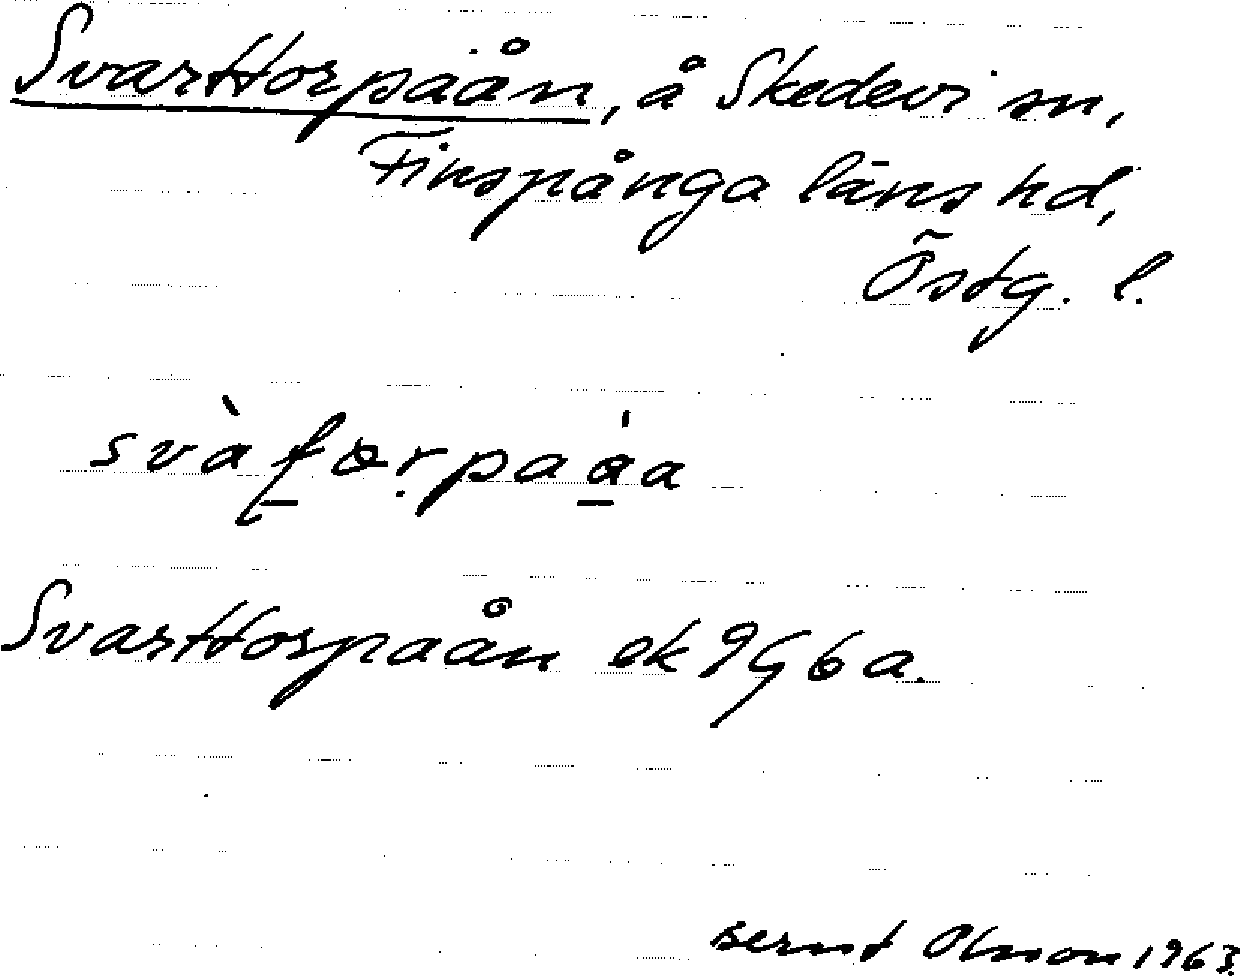 Svarttorpaån, å Skedevi sn,
Finspånga läns hd,
Östg. l.
svàʈɷrpaáa
Svarttorpaån ek 9G6a.
Bernt Olsson 1963.